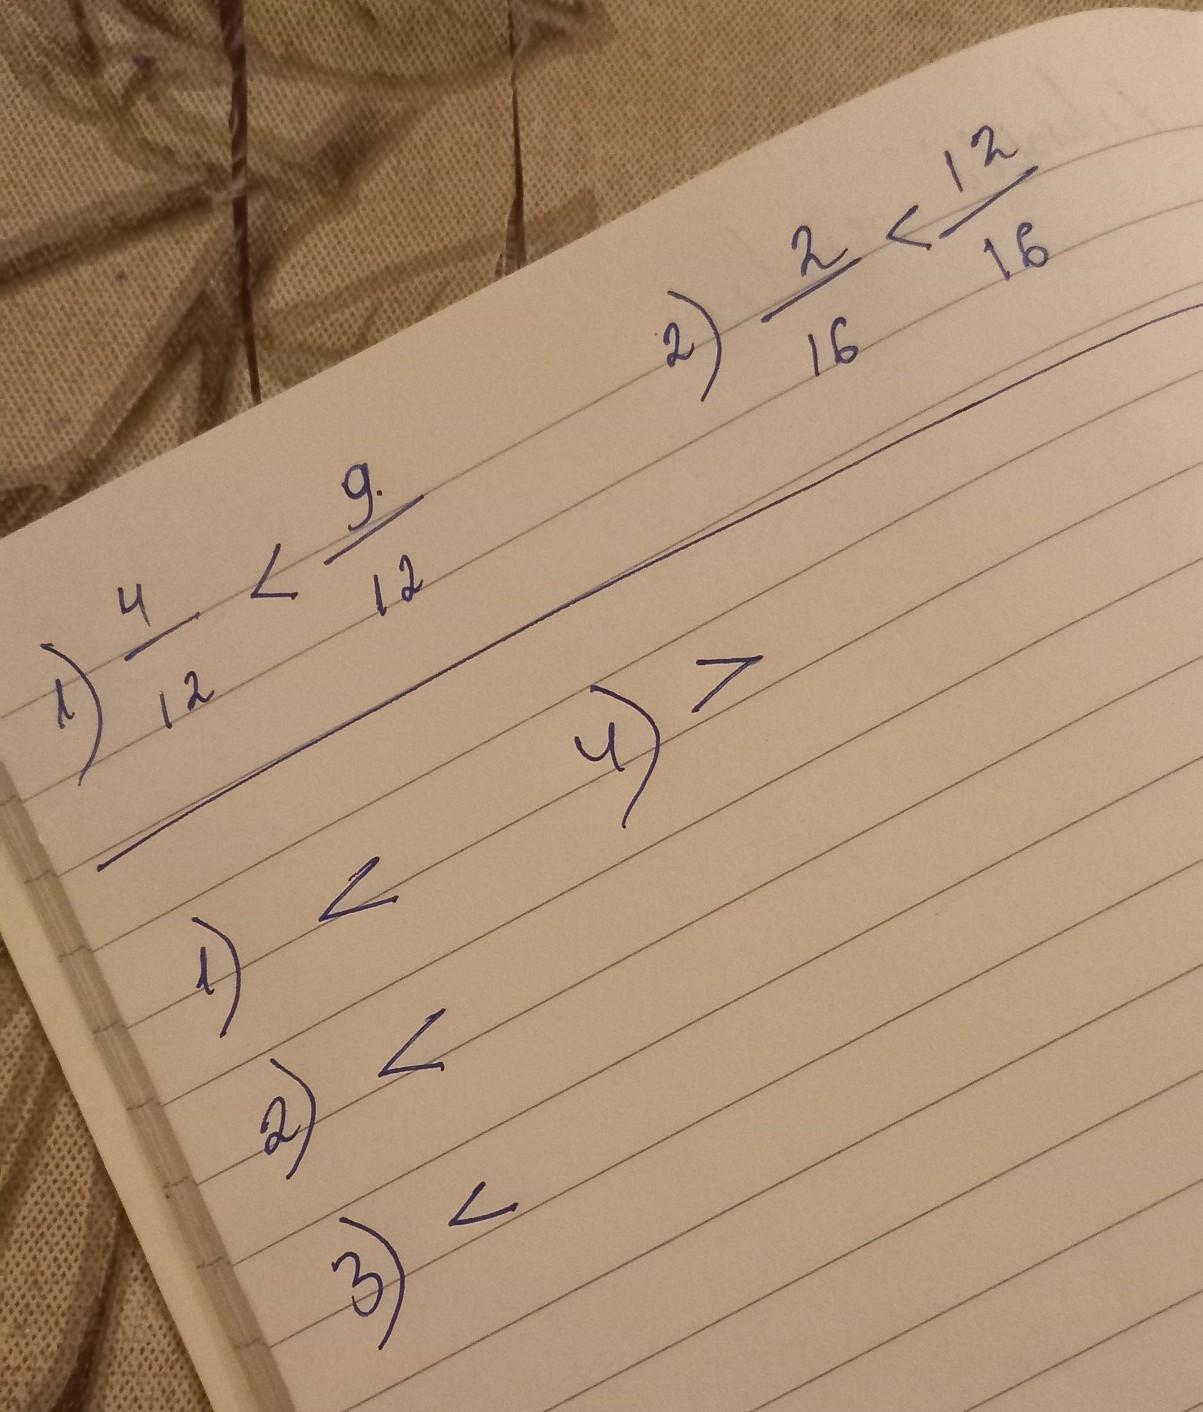 1) 4/12 < 9/12
2) 2/16 < 12/16
1) <
2) <
3) <
4) >